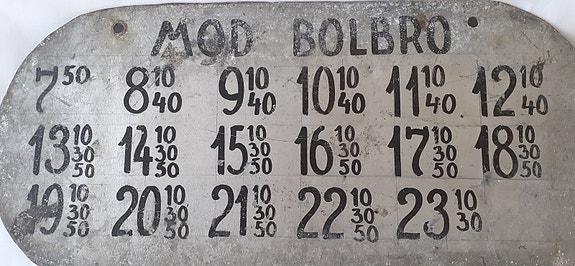 MOD BOLBRO
7 50 8 10 40 9 10 40 10 10 40 11 10 40 12 10 40
13 10 30 50 14 10 30 50 15 10 30 50 16 10 30 50 17 10 30 50 18 10 30 50
19 10 30 50 20 10 30 50 21 10 30 50 22 10 30 50 23 10 30